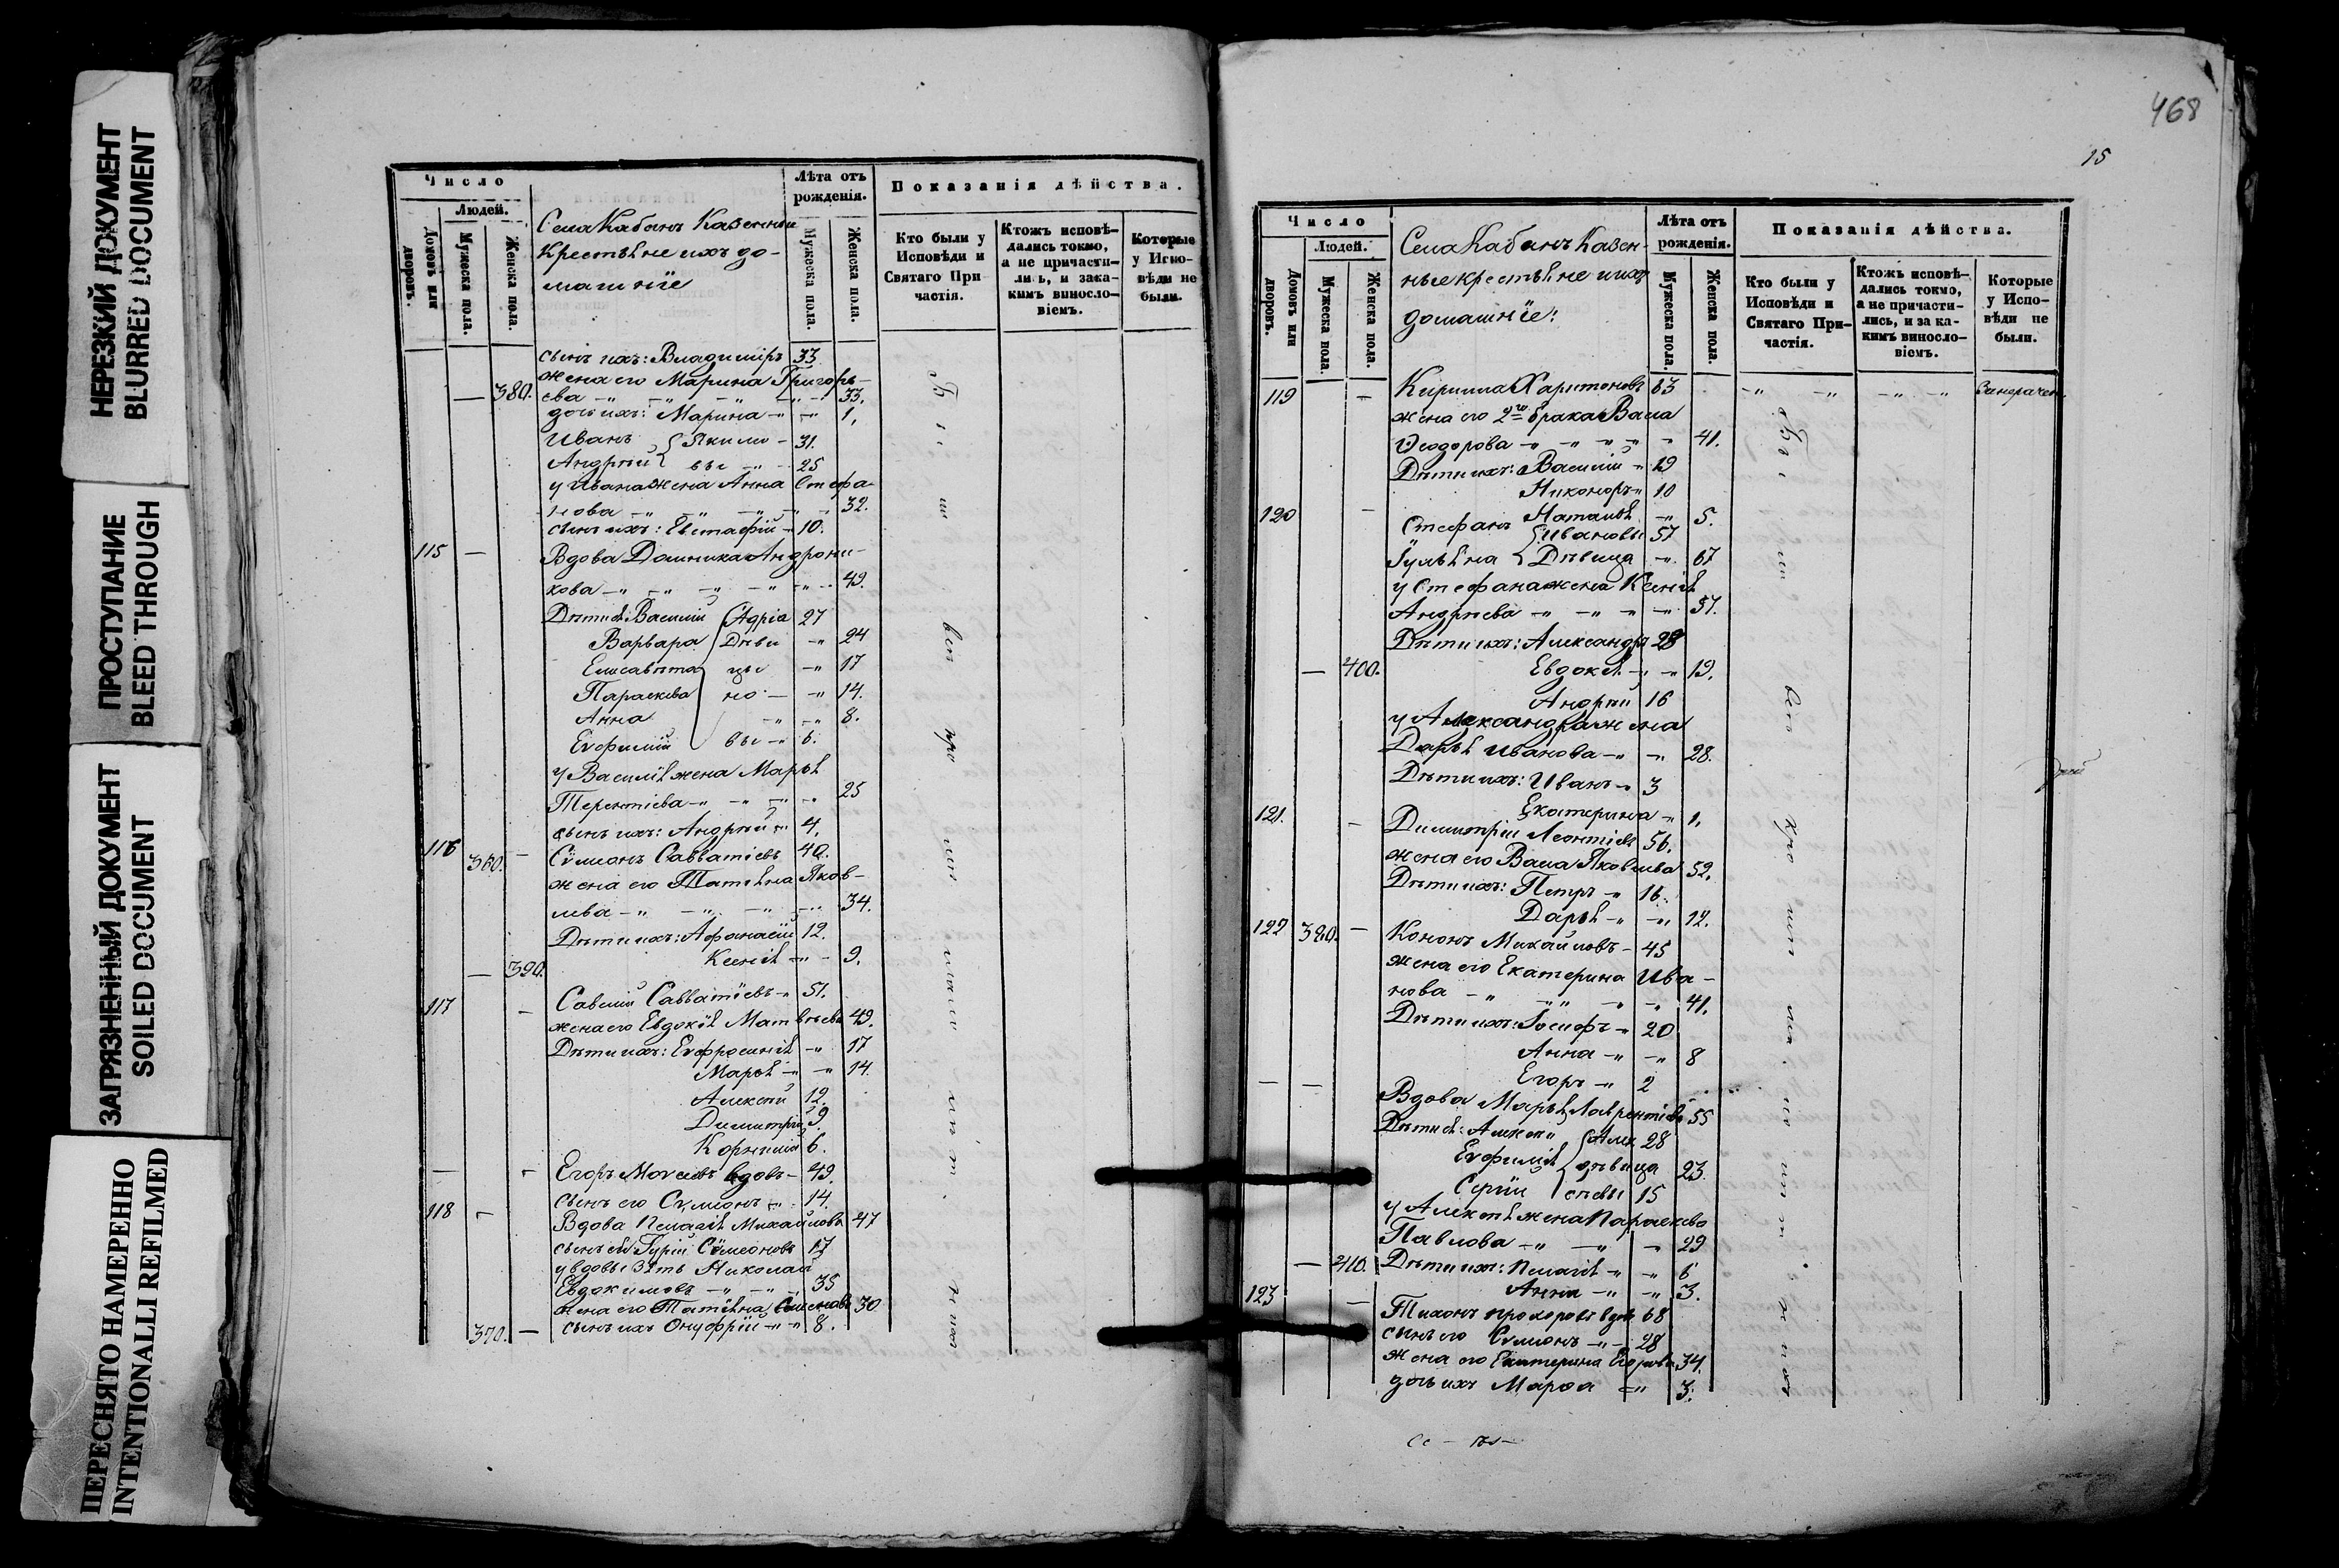 НЕРЕЗКИЙ ДОКУМЕНТ
BLURRED DOCUMENT
ПРОСТУПАНИЕ
BLEED THROUGH
ЗАГРЯЗНЕННЫЙ ДОКУМЕНТ
SOILED DOCUMENT
ПЕРЕСНЯТО НАМЕРЕННО
INTENTIONALLI REFILMED
Число
Людей.
Домовъ или дворовъ.
Мужеска пола.
Женска пола.
Села Кабанъ Казенныи
Крестьяне ихъ до-
машніе
Лѣта отъ рожденія.
Мужеска пола.
Женска пола.
Показанія дѣйства.
Кто были у Исповѣди и Святаго При частія.
Ктожъ исповѣ-дались токмо, а не причасти-лись, и зака-кимъ виносло-віемъ.
Которые у Испо-вѣди не были.
сынъ ихъ: Владимiръ 33
жена его Марина Григорь-
380. ева 33.
дочь ихъ: Марина 1.
Иванъ Якимо- 31.
Андрей вы 25
у Ивана жена Анна Стефа-
нова 32.
сынъ ихъ: Евстафiй 10.
115 Вдова Домника Андрони-
кова 49.
Дѣти ея: Василiй Адрiа 27
Варвара Дѣви 24
Елисавѣта цы 17
Параскева но 14.
Анна 8.
Евфимiй вы 6.
у Василiя жена Марья
Терентiева 25
сынъ ихъ: Андрей 4.
116 360. Сѵмеонъ Савватiевъ 40.
жена его Татiяна Яков-
лева 34.
Дѣти ихъ: Афанасiй 12.
390. Ксенiя 9.
117 Савелiй Савватiевъ 51.
жена его Евдокiя Матвѣева 49.
Дѣти ихъ: Евфросинiя 17
Марья 14.
Алексей 12.
Димитрiй 9.
Корнилiй 6.
Егоръ вдовъ 49.
сынъ его Сѵмеонъ 14.
118 Вдова Пелагiя Михайлова 47
сынъ ея Гурiй Сѵмеоновъ 17
у вдовы зять Николай
Евдокимовъ 35
жена его Татiяна Сѵмеонова 30
370. сынъ ихъ Онуфрiй 8.
468
15
Число
Людей.
Домовъ или дворовъ.
Мужеска пола.
Женска пола.
Села Кабанъ Казен-
ные крестьяне и ихъ
домашнiе:
Лѣта отъ рожденія.
Мужеска пола.
Женска пола.
Показанія дѣйства.
Кто были у Исповѣди и Святаго При-частія.
Ктожъ исповѣ-дались токмо, а не причасти-лись, и за ка-кимъ виносло-віемъ.
Которые у Испо-вѣди не были.
119 Кирилла Харитоновъ 63
жена его 2го брака Васса
Ѳеодорова 41.
Дѣти ихъ: Василiй 19
Никоноръ 10
Наталья 5.
120 Стефанъ Ивановы 57
Iулiяна Дѣвица 67
у Стефана жена Ксенiя
Андреева 57.
Дѣти ихъ: Александръ 28
400. Евдокiя 19.
Андрей 16
у Александра жена
Дарья Иванова 28.
Дѣти ихъ: Иванъ 3
Екатерина 1.
121. Димитрiй Леонтiевъ 56.
жена его Васса Яковлева 52.
Дѣти ихъ: Петръ 16.
Дарья 12.
122 380. Кононъ Михайловъ 45
жена его Екатерина Ива-
нова 41.
Дѣти ихъ: Iосифъ 20
Анна 8
Егоръ 2
Вдова Марья Лаврентiева 55
Дѣти ея: Алексей 28
Евфимiя дѣвица 23.
Сергiй 15
у Алексея жена Параскева
Павлова 29
410. Дѣти ихъ: Пелагiя 6
Анна 3.
123 Тихонъ Прохоровъ вдовъ 68
сынъ его Сѵмеонъ 28
жена его Екатерина Егорова 34.
дочь ихъ Марѳа 3.